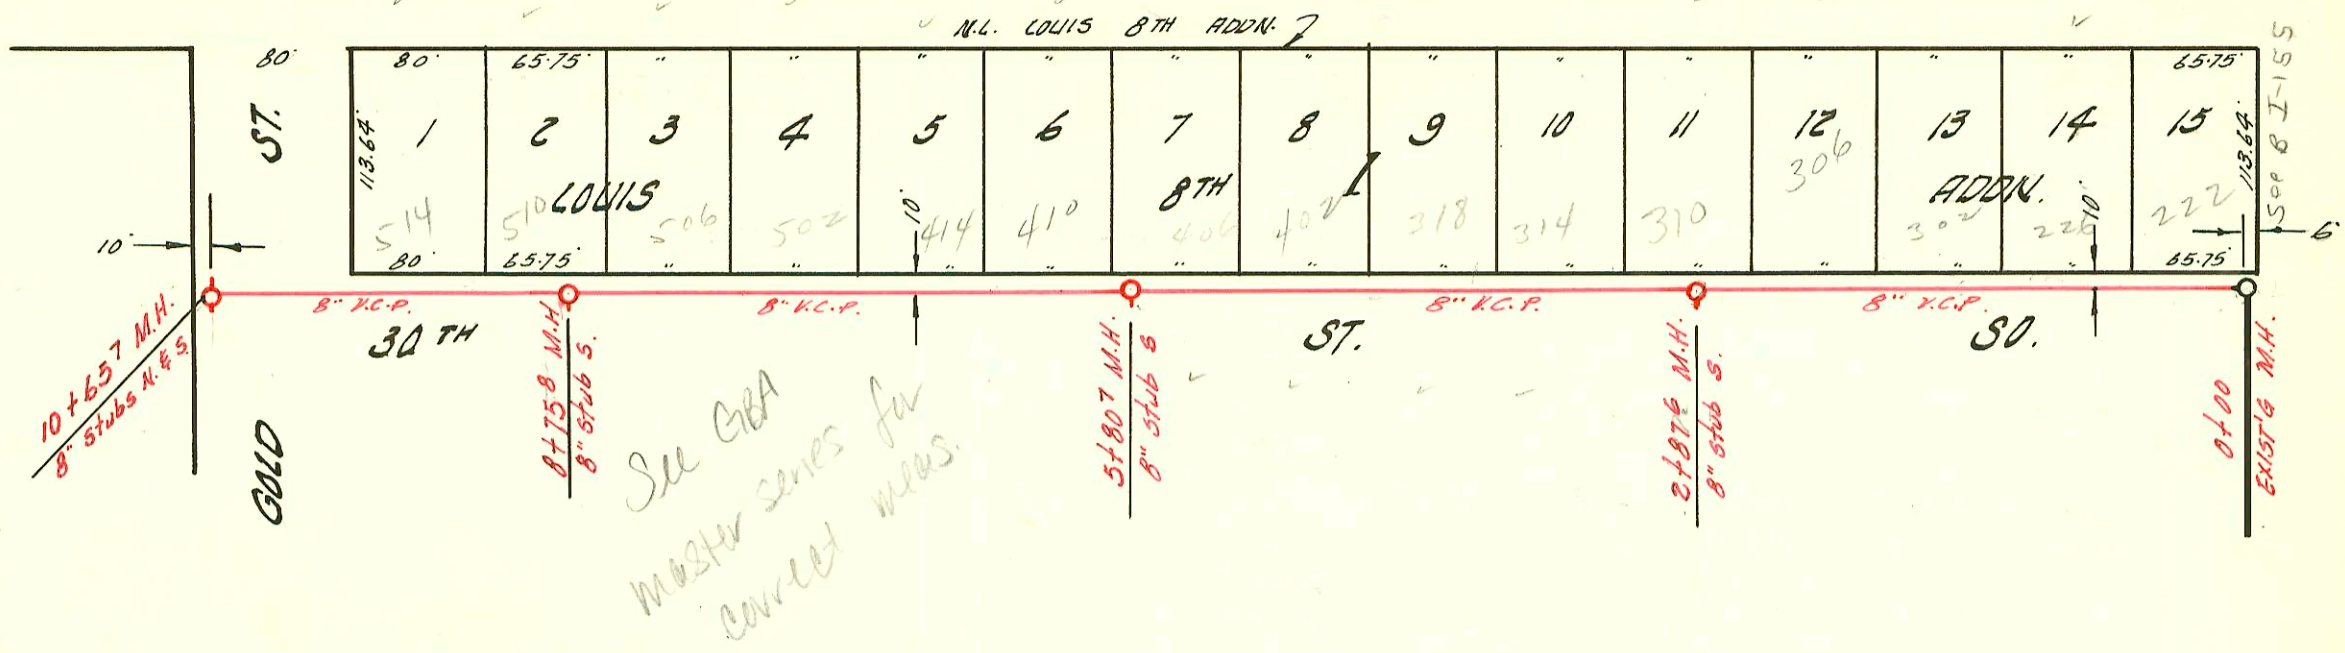 N.L. LOUIS 8TH ADDN.
80' 80' 65.75' " " " " " " " " " " " " 65.75'
ST.
113.64'
1 2 3 4 5 6 7 8 9 10 11 12 13 14 15
113.64'
LOUIS 8TH 1 ADDN.
306
514 510 506 502 414 410 406 402 318 314 310 302 226 222
10' 10' 10' 6'
80' 65.75' " " " " " " " " " " " " 65.75'
8" V.C.P. 8" V.C.P. 8" V.C.P. 8" V.C.P.
30TH ST. SO.
GOLD
10+65⁷ M.H.
8" Stubs N. & S.
8+75⁸ M.H.
8" Stub S.
5+80⁷ M.H.
8" Stub S
2+87⁶ M.H.
8" Stub S.
0+00
EXIST'G M.H.
See GBA
master series for
correct meas.